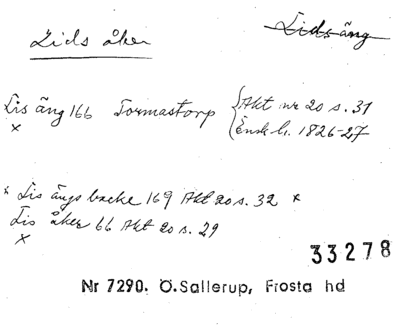 Lids åker
Lids äng
Lis äng 166 Tormastorp Akt nr 20 s. 31
x Ensk. h. 1826-27
x Lis ängs backe 169 Akt 20 s. 32 x
Lis åker 66 Akt 20 s. 29
x
33278
Nr 7290. Ö.Sallerup, Frosta hd